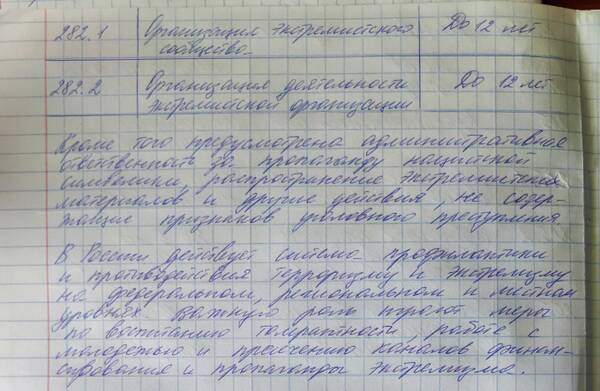 282.1 Организация экстремистского До 12 лет
сообщества
282.2 Организация деятельности До 12 лет
экстремистской организации
Кроме того предусмотрена административная
отвественность за пропаганду нацистской
символики, распространение экстремистских
материалов и другие действия, не содер-
жащие признаков уголовного преступления
В России действует система профилактики
и противодействия терроризму и экстремизму
на федеральном, региональном и местном
уровнях. Важную роль играют меры
по воспитанию толерантности работе с
молодежью и пресечению каналов финан-
сирования и пропаганды экстремизма.